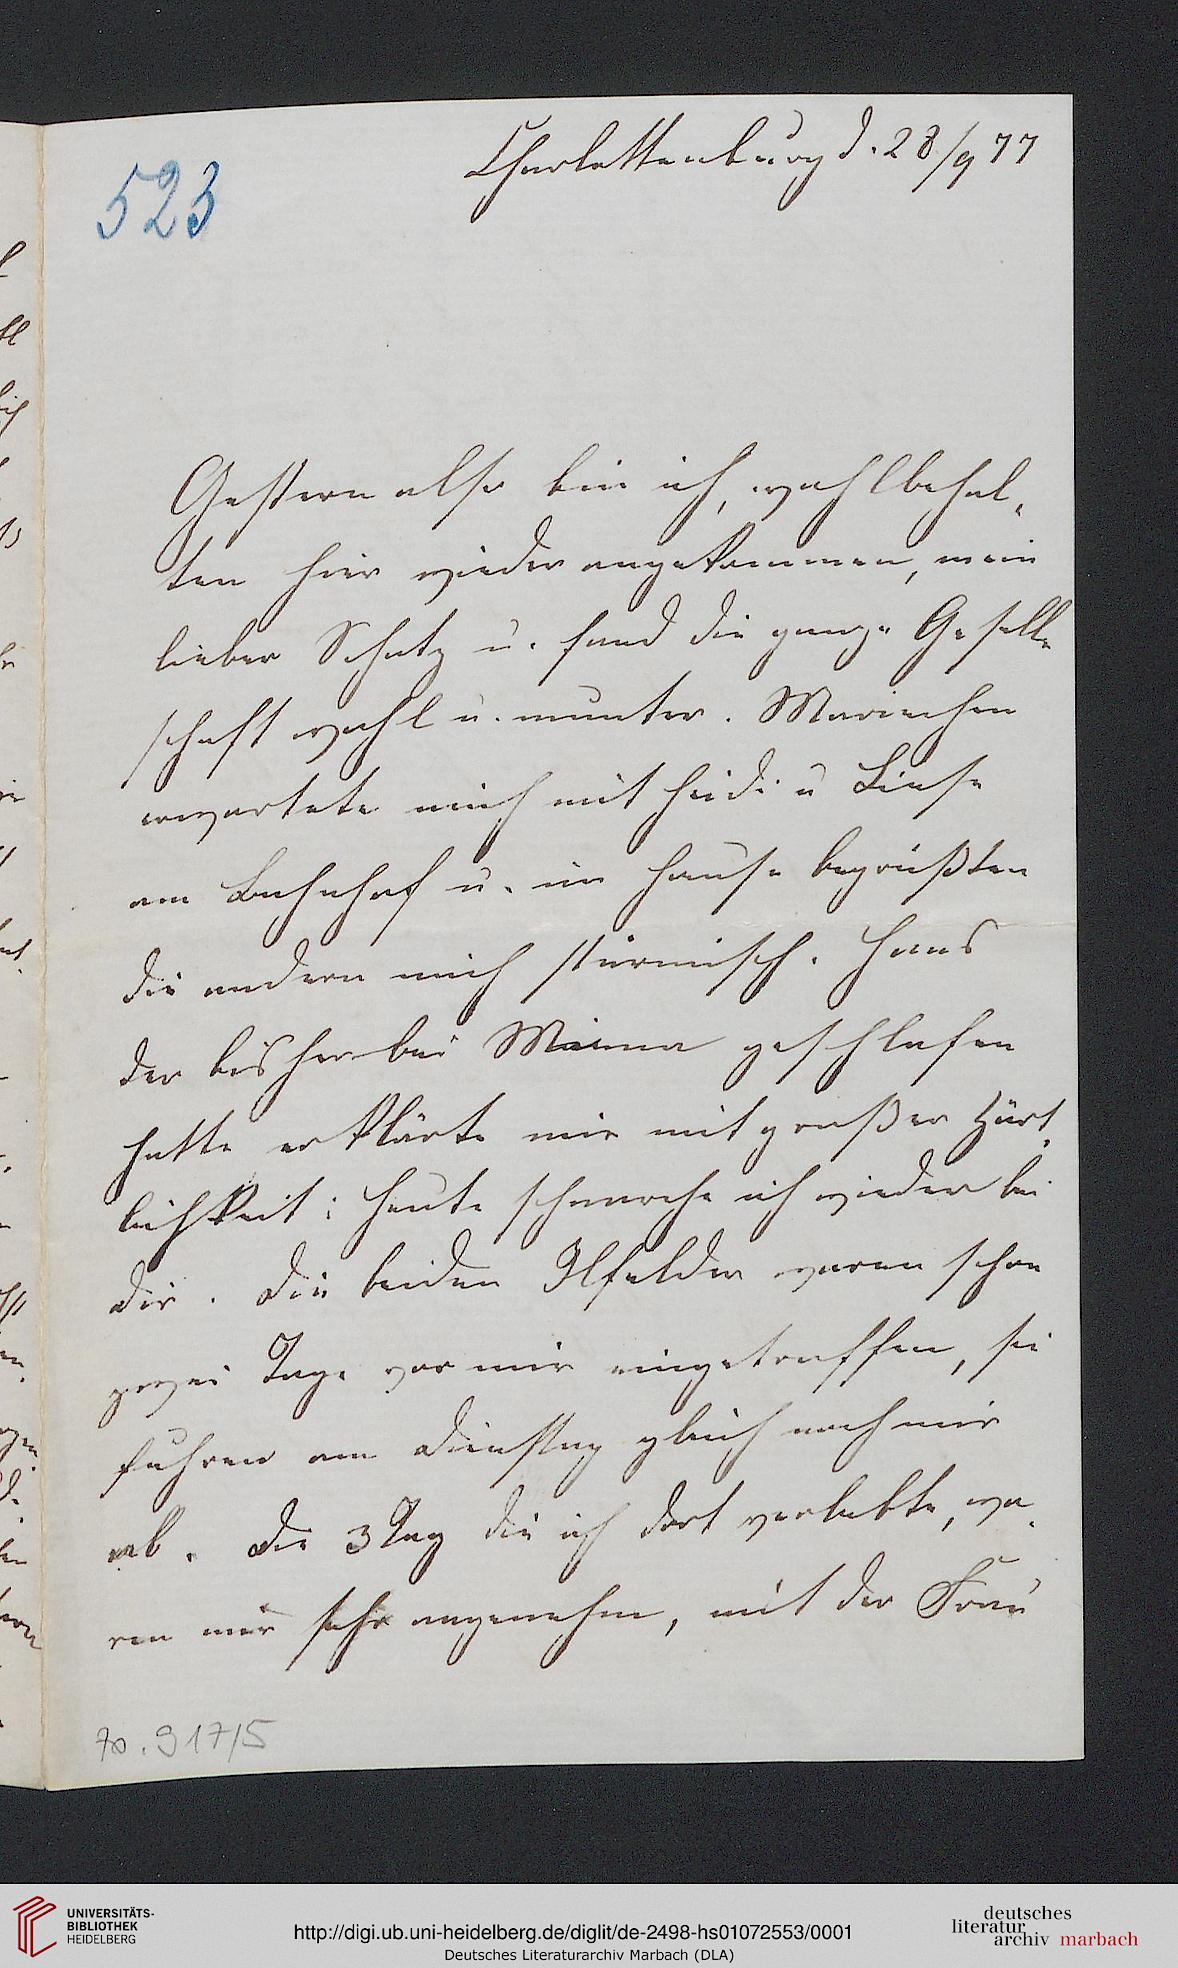 Charlottenburg d. 28/9 77
523
Gestern also bin ich, wohlbehal-
ten hier wieder angekommen, mein
lieber Schatz u. fand die ganze Gesell-
schaft wohl u. munter. Mariechen
erwartete mich mit Heidi u Liese
am Bahnhof u. im Hause begrüßten
die andern mich stürmisch. Hans
der bisher bei Minna geschlafen
hatte erklärte mir mit großer Zärt-
lichkeit: heute schnarche ich wieder bei
dir. Die beiden Ilfelder waren schon
zwei Tage vor mir eingetroffen, sie
fuhren am Dienstag gleich nach mir
ab. Die 3 Tag die ich dort verlebte, wa-
ren mir sehr angenehm, mit der Frau
70.917/5
UNIVERSITÄTS-
BIBLIOTHEK
HEIDELBERG
http://digi.ub.uni-heidelberg.de/diglit/de-2498-hs01072553/0001
Deutsches Literaturarchiv Marbach (DLA)
deutsches
literatur
archiv marbach